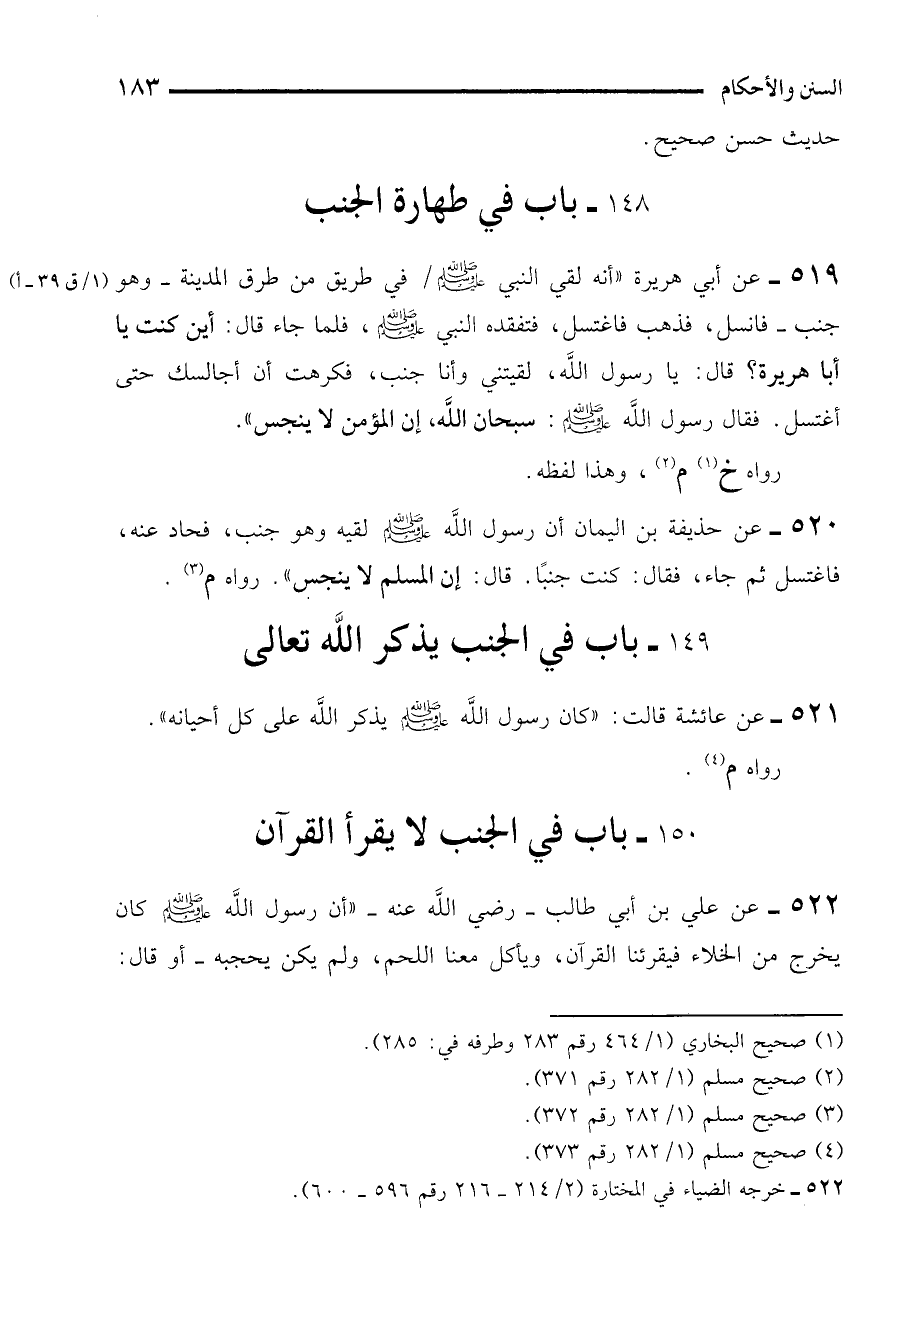 السنن والأحكام ١٨٣
حديث حسن صحيح.
١٤٨ ـ باب في طهارة الجنب
٥١٩ ـ عن أبي هريرة «أنه لقي النبي ﷺ/ في طريق من طرق المدينة ـ وهو (١/ق٣٩ـأ)
جنب ـ فانسل، فذهب فاغتسل، فتفقده النبي ﷺ، فلما جاء قال: أين كنت يا
أبا هريرة؟ قال: يا رسول اللَّه، لقيتني وأنا جنب، فكرهت أن أجالسك حتى
أغتسل. فقال رسول اللَّه ﷺ: سبحان اللَّه، إن المؤمن لا ينجس».
رواه خ(١) م(٢)، وهذا لفظه.
٥٢٠ ـ عن حذيفة بن اليمان أن رسول اللَّه ﷺ لقيه وهو جنب، فحاد عنه،
فاغتسل ثم جاء، فقال: كنت جنبًا. قال: إن المسلم لا ينجس». رواه م(٣).
١٤٩ ـ باب في الجنب يذكر اللَّه تعالى
٥٢١ ـ عن عائشة قالت: «كان رسول اللَّه ﷺ يذكر اللَّه على كل أحيانه».
رواه م(٤).
١٥٠ ـ باب في الجنب لا يقرأ القرآن
٥٢٢ ـ عن علي بن أبي طالب ـ رضي اللَّه عنه ـ «أن رسول اللَّه ﷺ كان
يخرج من الخلاء فيقرئنا القرآن، ويأكل معنا اللحم، ولم يكن يحجبه ـ أو قال:
(١) صحيح البخاري (١/ ٤٦٤ رقم ٢٨٣ وطرفه في: ٢٨٥).
(٢) صحيح مسلم (١/ ٢٨٢ رقم ٣٧١).
(٣) صحيح مسلم (١/ ٢٨٢ رقم ٣٧٢).
(٤) صحيح مسلم (١/ ٢٨٢ رقم ٣٧٣).
٥٢٢ ـ خرجه الضياء في المختارة (٢/ ٢١٤ ـ ٢١٦ رقم ٥٩٦ ـ ٦٠٠).